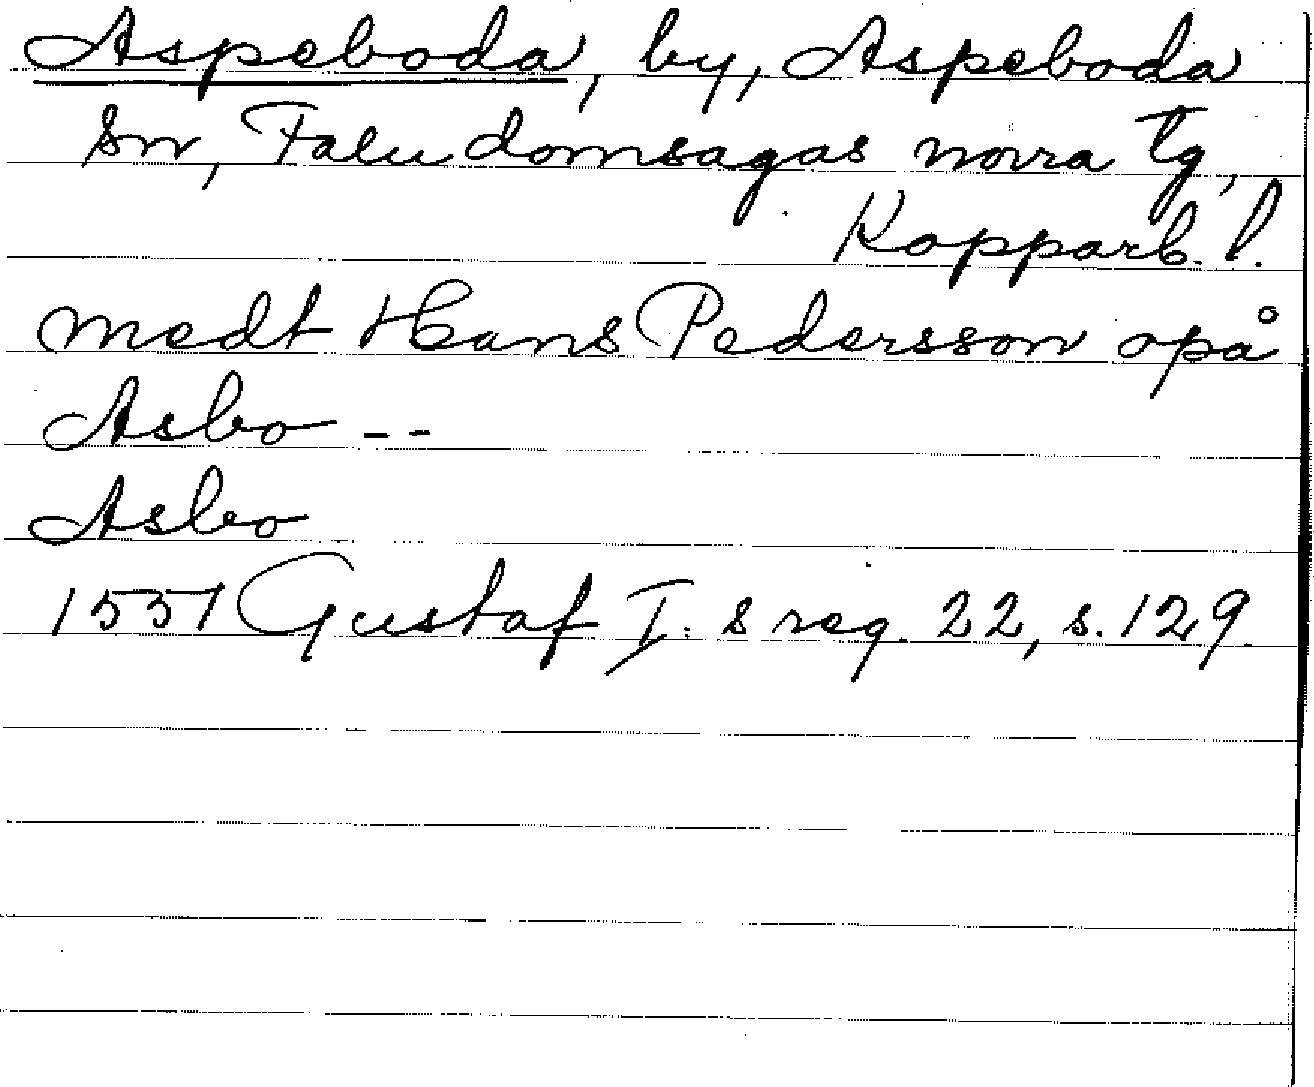 Aspeboda, by, Aspeboda
sn, Falu domsagas norra tg,
Kopparb. l.
medt Hans Pedersson opå
Asbo --
Asbo
1551 Gustaf I:s reg. 22, s. 129.